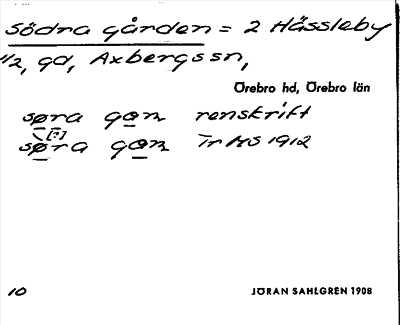 Södra gården = 2 Hässleby
1/2, gd, Axbergs sn,
Örebro hd, Örebro län
søra gan renskrift
[?]
søra gan Tr MS 1912
10
JÖRAN SAHLGREN 1908